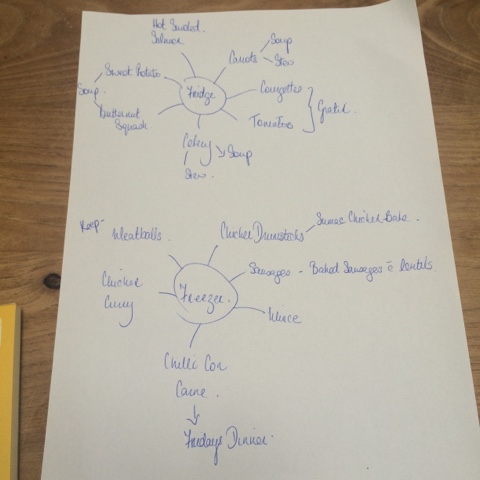 Hot Smoked
Salmon
Carrots
Soup
Stew
Sweet Potato
Soup
Butternut
Squash
Fridge
Courgettes
Tomatoes
Gratin
Celery
Soup
Stew
Keep
Meatballs
Chicken Drumsticks
Sumac Chicken Bake
Chicken
Curry
Freezer
Sausages - Baked Sausages c̄ Lentils
Mince
Chilli Con
Carne
Fridays Dinner